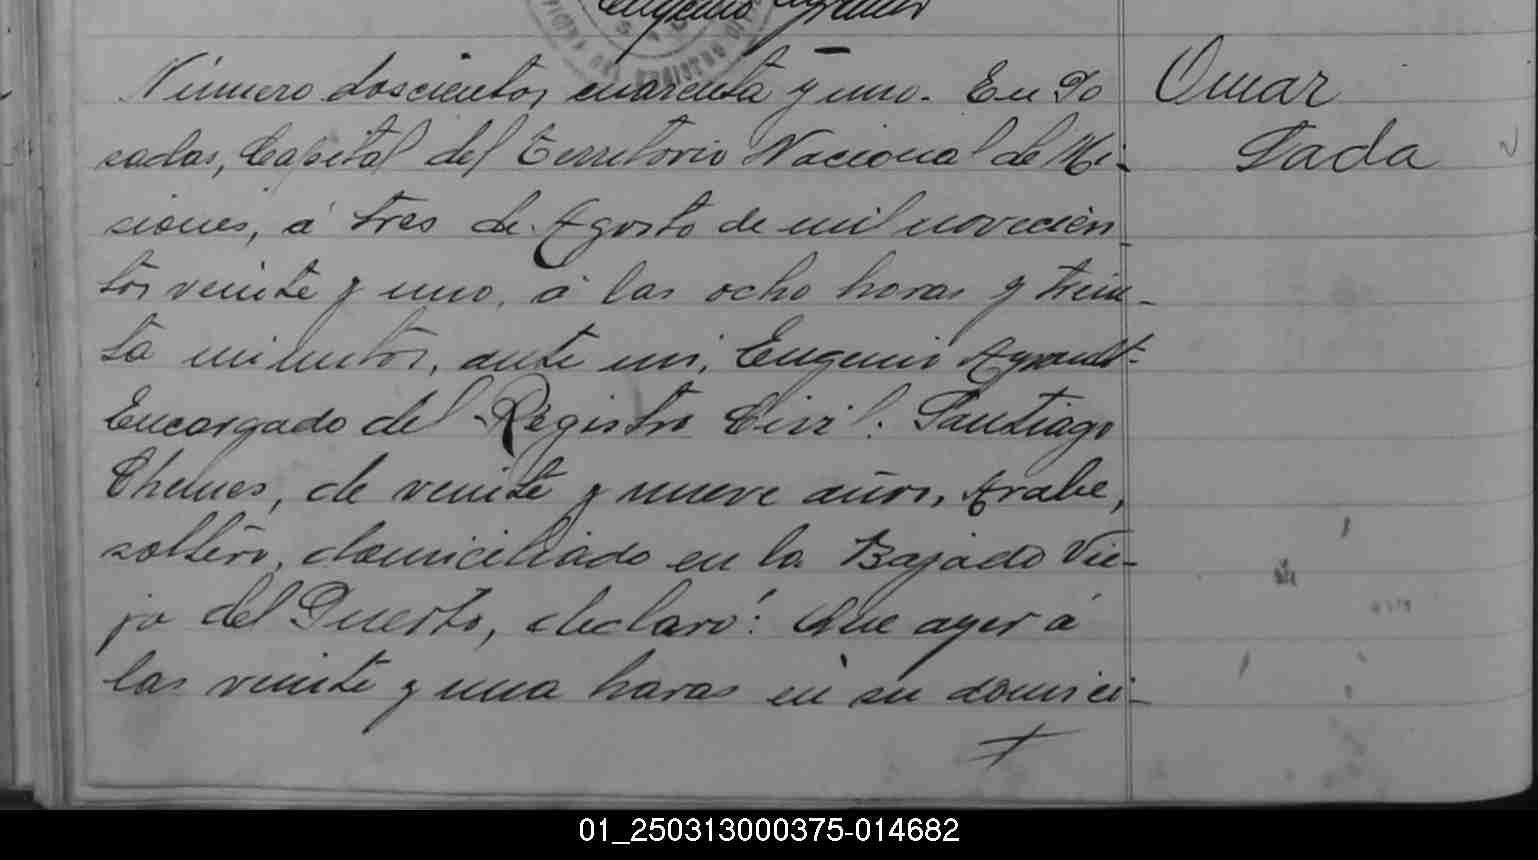 Número doscientos cuarenta y uno. En Po
sadas, Capital del Territorio Nacional de Mi-
siones, á tres de Agosto de mil novecien-
tos veinte y uno, á las ocho horas y trein-
ta minutos, ante mi, Eugenio
Encargado del Registro Civil: Santiago
Chemes, de veinte y nueve años, Arabe,
soltero, domiciliado en la Bajada Vie-
ja del Puerto, declaró: Que ayer á
las veinte y una horas en su domici-
Omar
Tada
01_250313000375-014682